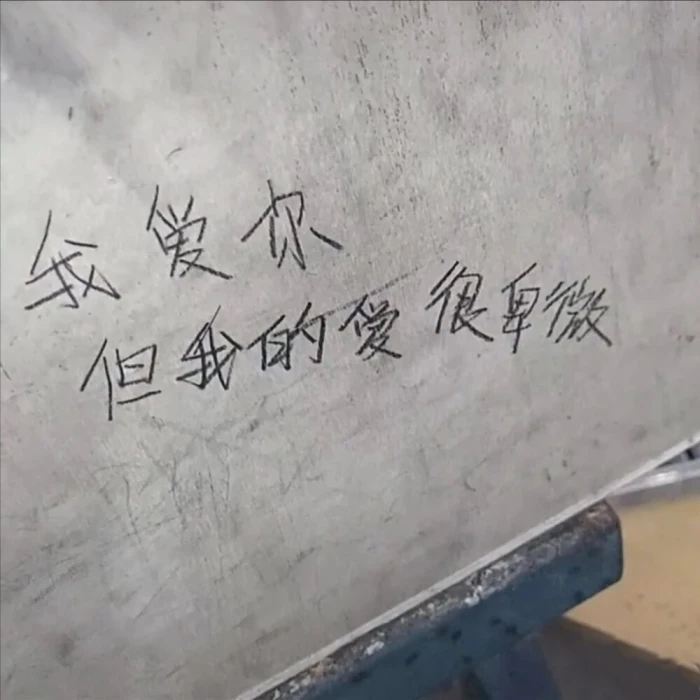 我爱你
但我的爱很卑微